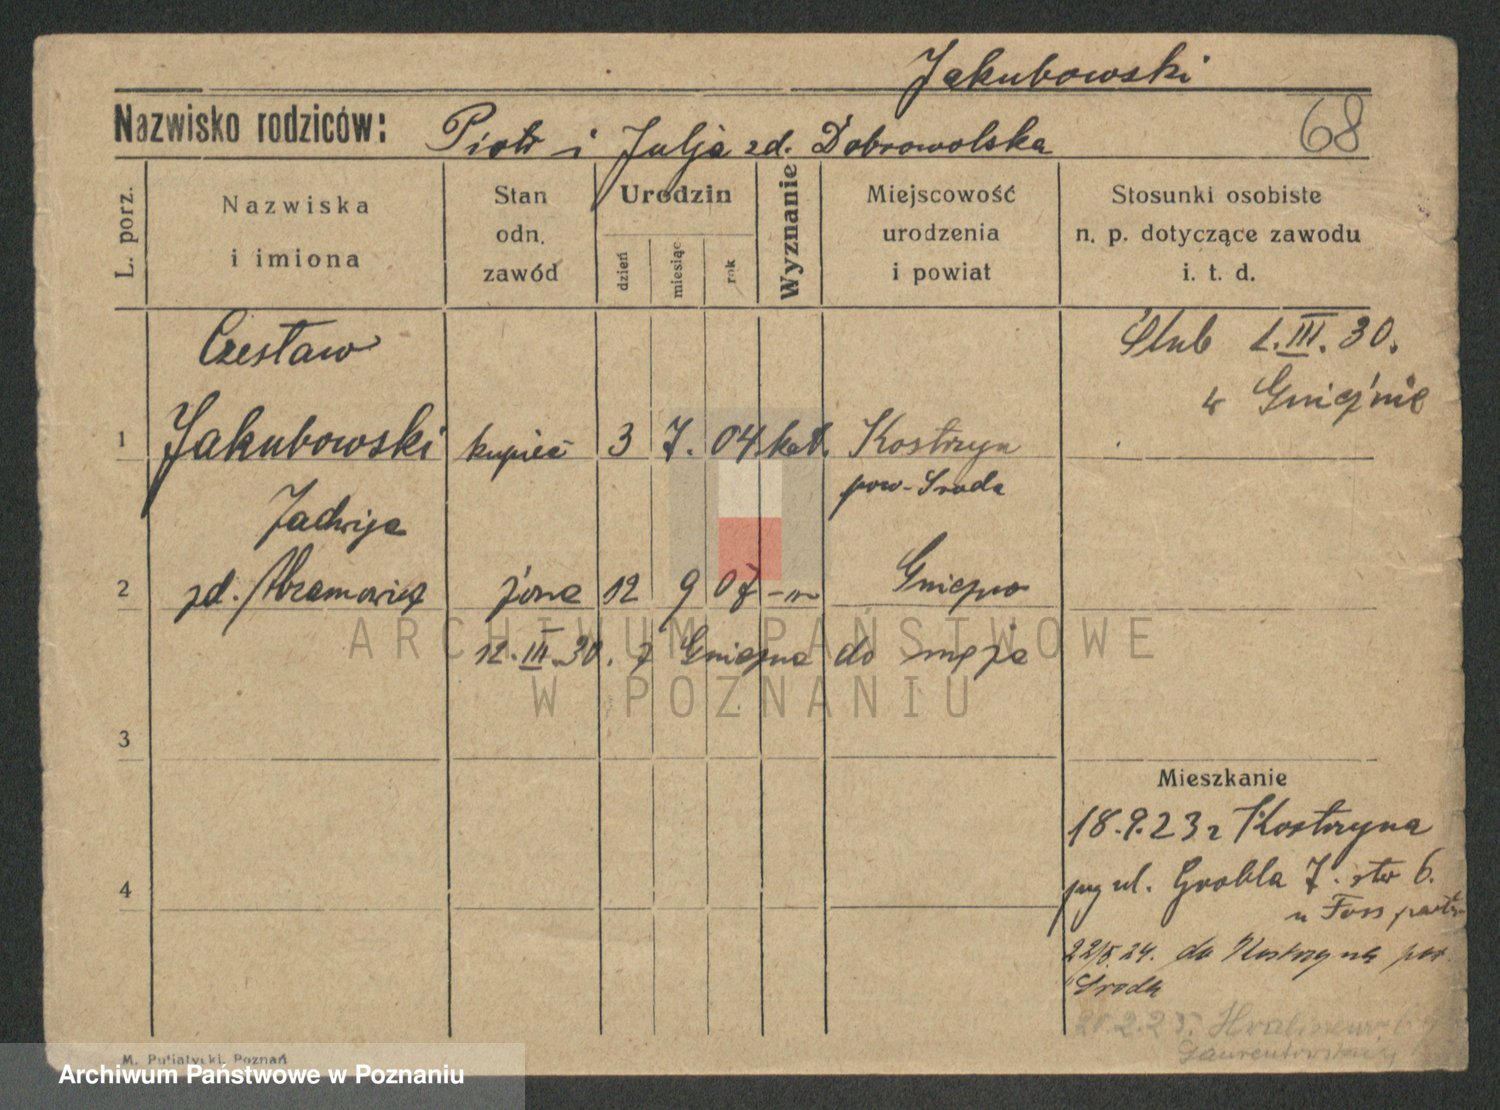 Jakubowski
Nazwisko rodziców: Piotr i Julja zd. Dobrowolska
68
L. porz.
Nazwiska
i imiona
Stan
odn.
zawód
Urodzin
dzień
miesiąc
rok
Wyznanie
Miejscowość
urodzenia
i powiat
Stosunki osobiste
n. p. dotyczące zawodu
i. t. d.
Czesław
Ślub 1.III.30.
w Gnieźnie
1 Jakubowski kupiec 3 7. 04. kat. Kostrzyn
pow. Sroda
Jadwiga
2 zd. Abramowicz żona 12 9 07 -"- Gniezno
12.III.30. z Gniezna do męża
3
Mieszkanie
18.9.23 z Kostrzyna
ul. Grobla 7. 6.
u Foss
4
22/5.24. do Kostrzyna
Sroda
20.2.25.
ARCHIWUM PAŃSTWOWE
W POZNANIU
M. Putiatycki, Poznań
Archiwum Państwowe w Poznaniu